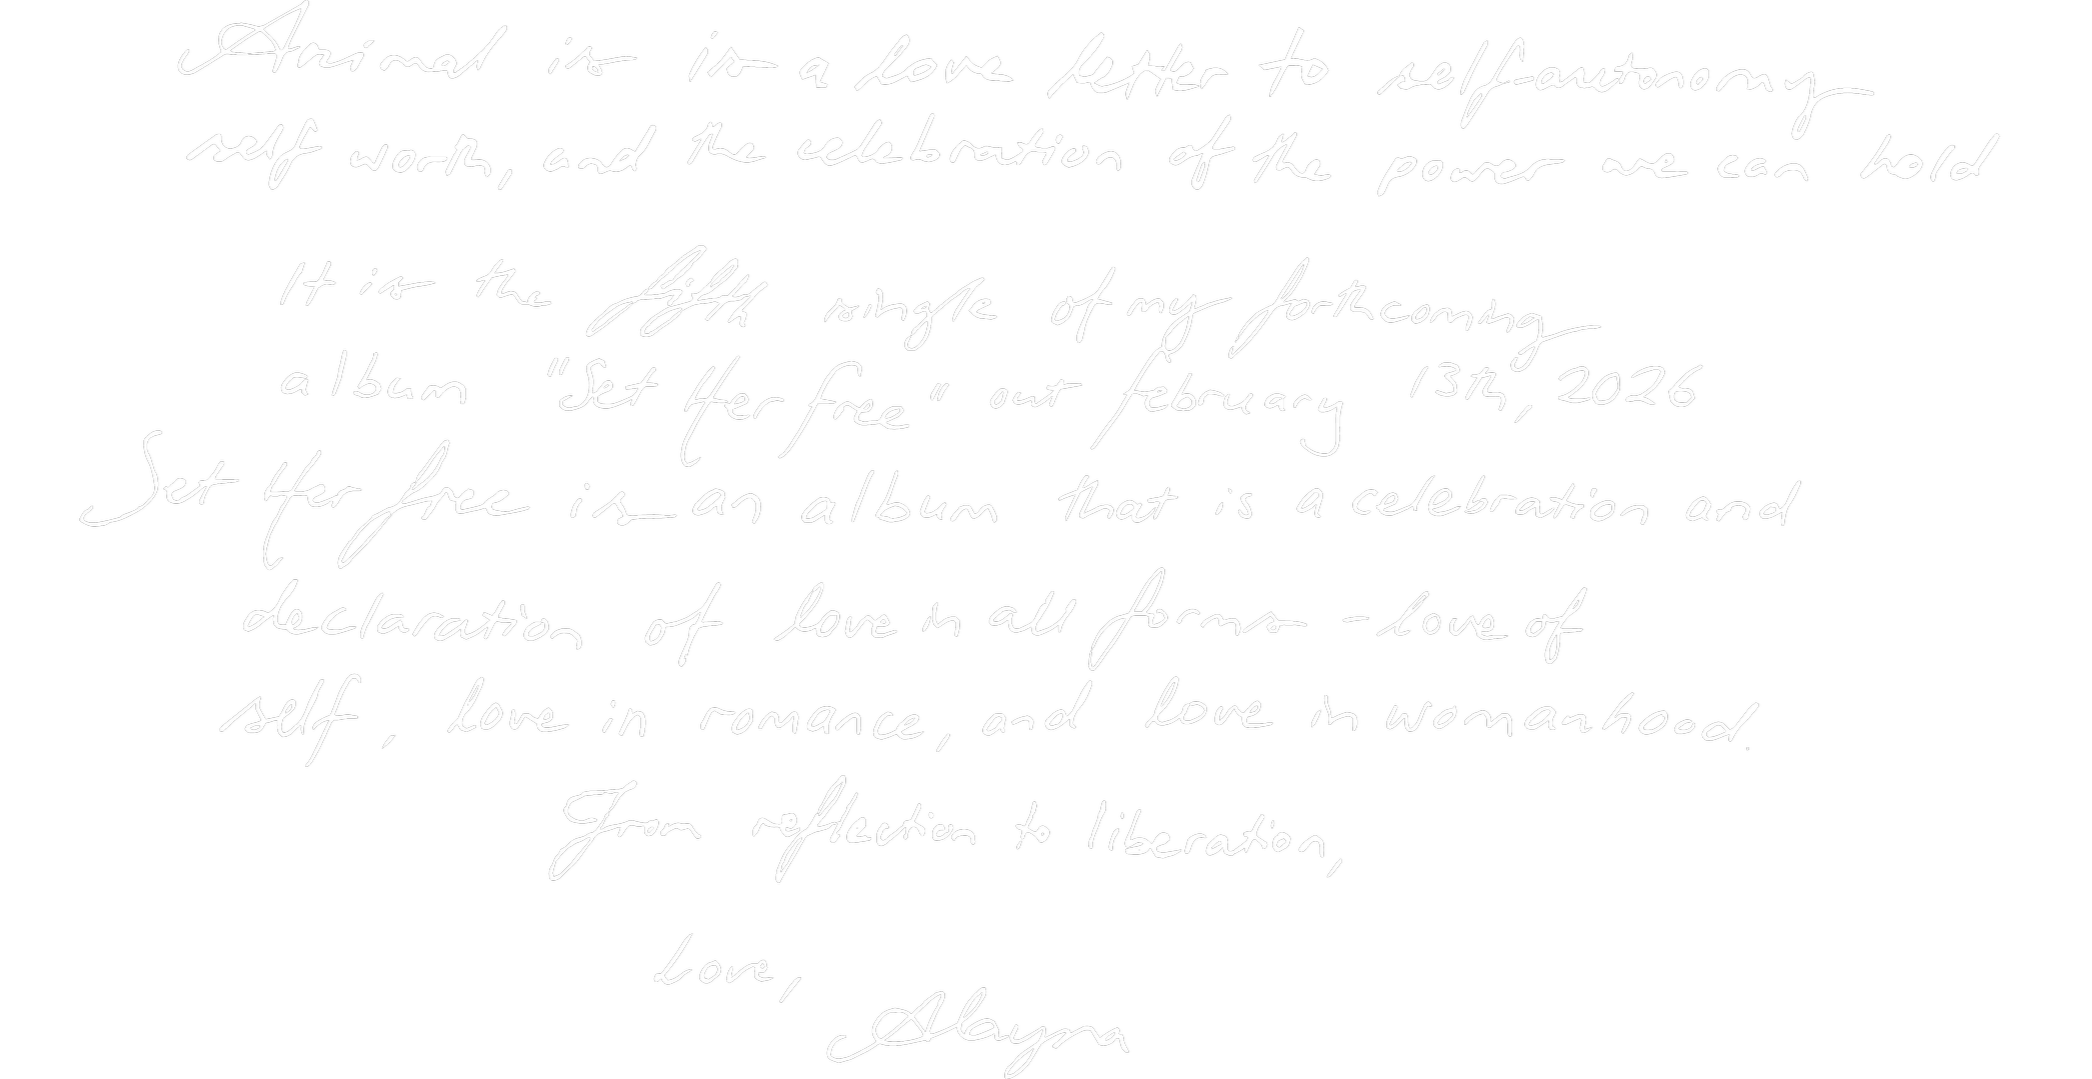 Animal is is a love letter to self autonomy
self worth, and the celebration of the power we can hold
It is the fifth single of my forthcoming
album "Set Her free" out february 13th, 2026
Set Her free is an album that is a celebration and
declaration of love in all forms - love of
self, love in romance, and love in womanhood.
From reflection to liberation,
Love,
Alayna